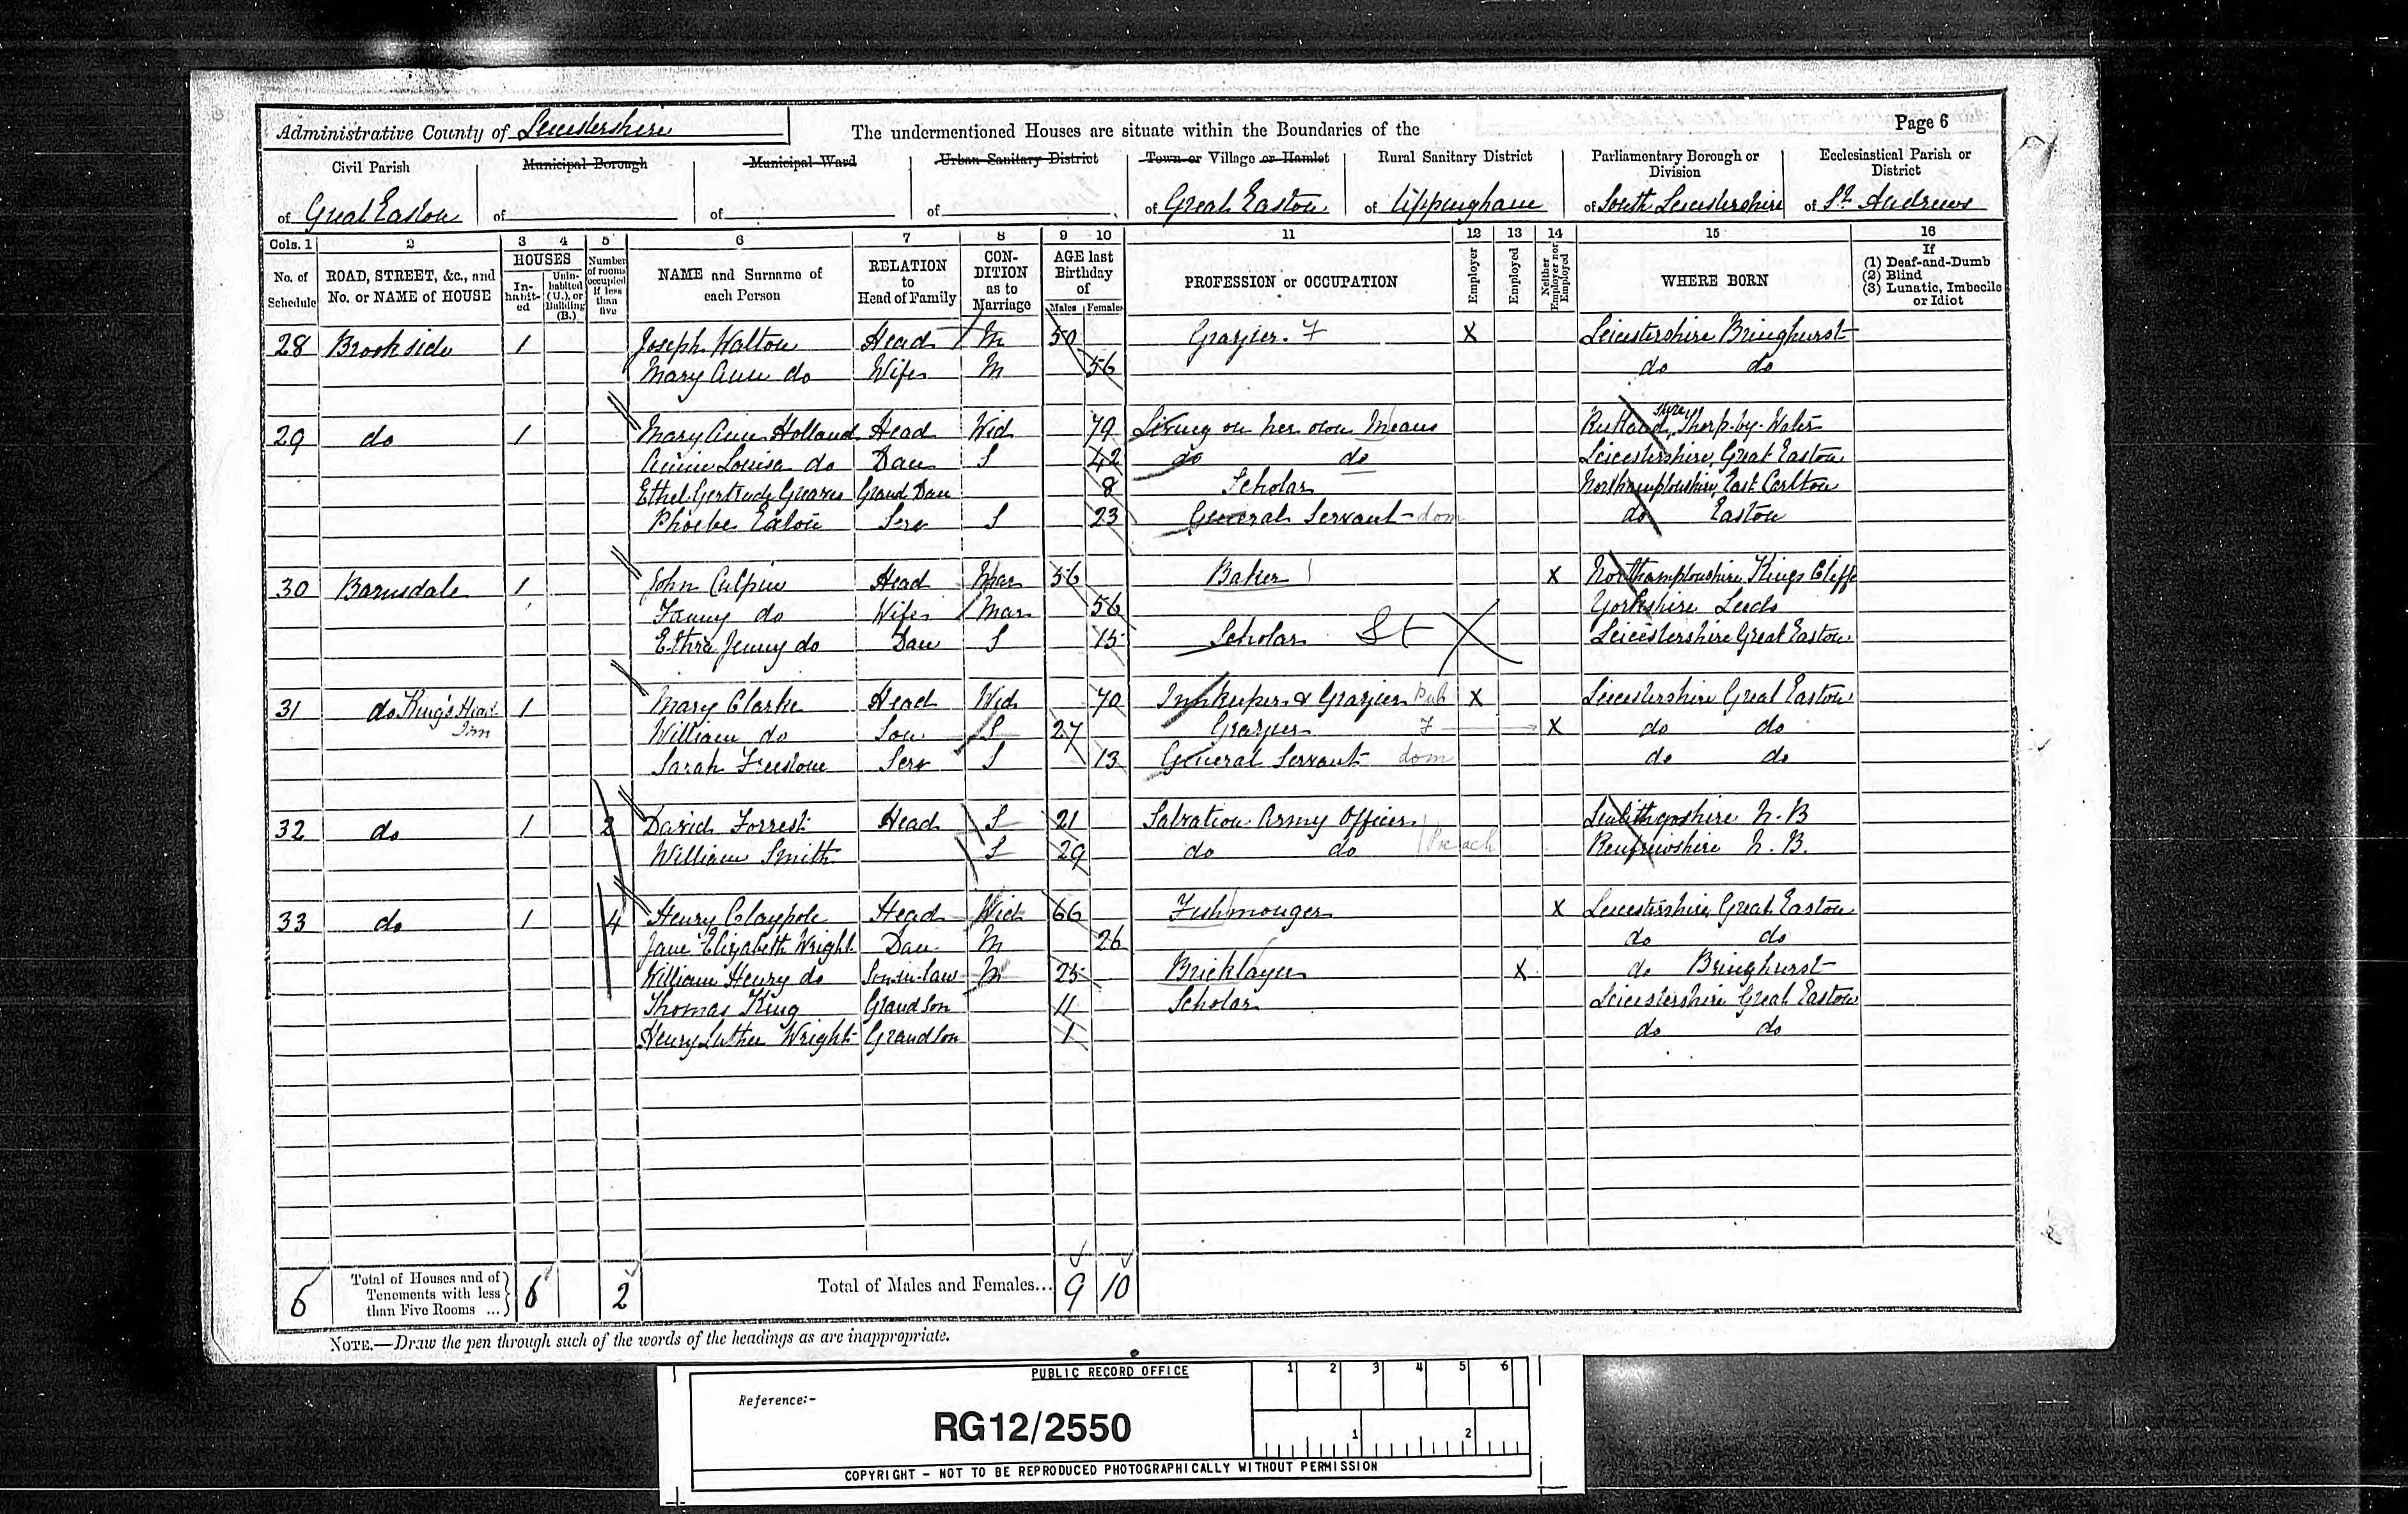 Administrative County of Leicestershire
The undermentioned Houses are situate within the Boundaries of the
Page 6
Civil Parish of Great Easton
Municipal Borough of
Municipal Ward of
Urban Sanitary District of
Town or Village or Hamlet of Great Easton
Rural Sanitary District of Uppingham
Parliamentary Borough or Division of South Leicestershire
Ecclesiastical Parish or District of St Andrews
Cols. 1 2 3 4 5 6 7 8 9 10 11 12 13 14 15 16
No. of Schedule
ROAD, STREET, &c., and No. or NAME of HOUSE
HOUSES
In-habit-ed
Unin-habited (U.), or Building (B.)
Number of rooms occupied if less than five
NAME and Surname of each Person
RELATION to Head of Family
CON-DITION as to Marriage
AGE last Birthday of
Males Females
PROFESSION or OCCUPATION
Employer
Employed
Neither Employer nor Employed
WHERE BORN
If
(1) Deaf-and-Dumb
(2) Blind
(3) Lunatic, Imbecile or Idiot
28 Brookside 1 Joseph Walton Head M 50 Grazier F X Leicestershire Bringhurst
Mary Ann do Wife M 56 do do
29 do 1 Mary Ann Holland Head Wid 79 Living on her own Means Rutland shire Thorp-by-Water
Annie Louisa do Dau S 42 do do Leicestershire, Great Easton
Ethel Gertrude Greaves Grand Dau 8 Scholar Northamptonshire, East Carlton
Phoebe Serv S 23 General Servant dom do Easton
30 Barnsdale 1 John Culpin Head Mar 56 Baker X Northamptonshire Kings Cliffe
Fanny do Wife Mar 56 Yorkshire Leeds
Jenny do Dau S 15 Scholar St Leicestershire Great Easton
31 do King's Head Inn 1 Mary Clarke Head Wid 70 Innkeeper & Grazier Pub X Leicestershire Great Easton
William do Son S 27 Grazier F X do do
Sarah Freestone Serv S 13 General Servant dom do do
32 do 1 2 David Forrest Head S 21 Salvation Army Officer Linlithgoshire N. B
William Smith S 29 do do Preach Renfrewshire N. B.
33 do 1 4 Henry Claypole Head Wid 66 Fishmonger X Leicestershire Great Easton
Jane Elizabeth Wright Dau M 26 do do
William Henry do Son-in-law M 25 Bricklayer X do Bringhurst
Thomas King Grandson 11 Scholar Leicestershire Great Easton
Henry Luther Wright Grandson 1 do do
6 Total of Houses and of Tenements with less than Five Rooms ... 6 2 Total of Males and Females... 9 10
NOTE.—Draw the pen through such of the words of the headings as are inappropriate.
PUBLIC RECORD OFFICE
1 2 3 4 5 6
Reference:-
RG12/2550
1 2
COPYRIGHT - NOT TO BE REPRODUCED PHOTOGRAPHICALLY WITHOUT PERMISSION